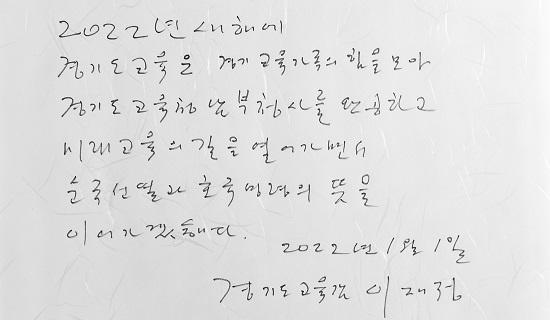 2022년 새해에
경기도교육은 경기교육가족의 힘을 모아
경기도교육청 남부청사를 완공하고
미래교육의 길을 열어가면서
순국선열과 호국영령의 뜻을
이어가겠습니다.
2022년 1월 1일
경기도교육감 이재정